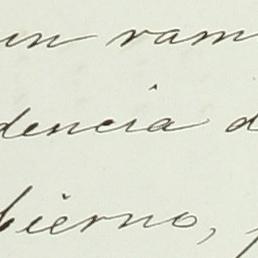 un ram
dencia d
bierno,